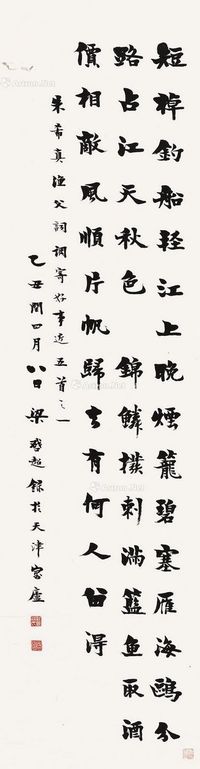 短棹釣船輕江上晚煙籠碧塞雁海鷗分
路占江天秋色 錦鱗撥刺滿籃魚取酒
價相敵風順片帆歸去有何人留得
朱希真漁父詞調寄好事近五首之一
乙丑閏四月八日梁啓超錄於天津寓廬